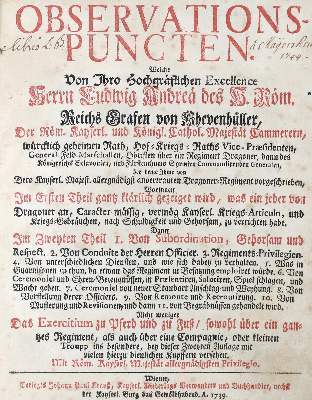 OBSERVATIONS-
PUNCTEN.
Welche
Von Ihro Hochgräflichen Excellence
Herrn Ludwig Andreä des H. Röm.
Reichs Grafen von Khevenhüller,
Der Röm. Kayserl. und Königl. Cathol. Majestät Cammerern,
würcklich geheimen Rath, Hof-Kriegs-Raths Vice-Præsidenten,
General-Feld-Marschallen, Obristen über ein Regiment Dragoner, dann des
Königreichs Sclavonien, und Fürstenthums Syrmien Commandirenden Generalen,
Dero Kayserl. Majest. allergnädigst anvertrauten Dragoner-Regiment vorgeschrieben,
Worinnen
Im Ersten Theil gantz klärlich gezeiget wird, was ein jeder von
Dragoner an, Caracter mässig, vermög Kayserl. Kriegs-Articuln, und
Kriegs-Gebräuchen, nach Schuldigkeit und Gehorsam, zu verrichten habe.
Dann
Im Zweyten Theil 1. Von Subordination, Gehorsam und
Respect. 2. Von Conduite der Herren Officier. 3. Regiments-Privilegien.
4. Von unterschiedlichen Diensten, und wie sich dabey zu verhalten. 5. Was in
Guarnisonen zu thun, da etwan das Regiment in Besatzung employiret würde. 6. Von
Ceremonial und Ehren-Bezeugungen, in Præsentiren, Salutiren, Spiel schlagen, und
Wacht geben. 7. Ceremoniel von neuer Standart Anschlag- und Weyhung. 8. Von
Vorstellung derer Officiers. 9. Von Remonte und Recroutirung. 10. Von
Musterung und Revisionen, und dann 11. von Begräbnüssen gehandelt wird.
Nicht weniger
Das Exercitium zu Pferd und zu Fuß, sowohl über ein gan-
tzes Regiment, als auch über eine Compagnie, oder kleinen
Troupp ins besondere, bey dieser Zweyten Auflage mit
vielen hierzu dienlichen Kupffern versehen.
Mit Röm. Kayserl. Majestät allergnädigsten Privilegio.
Wienn,
Verlegts Johann Paul Krauß, Kayserl. Niederlags Verwandten und Buchhandler, nechst
der Kayserl. Burg am Gewölb. A. 1739.